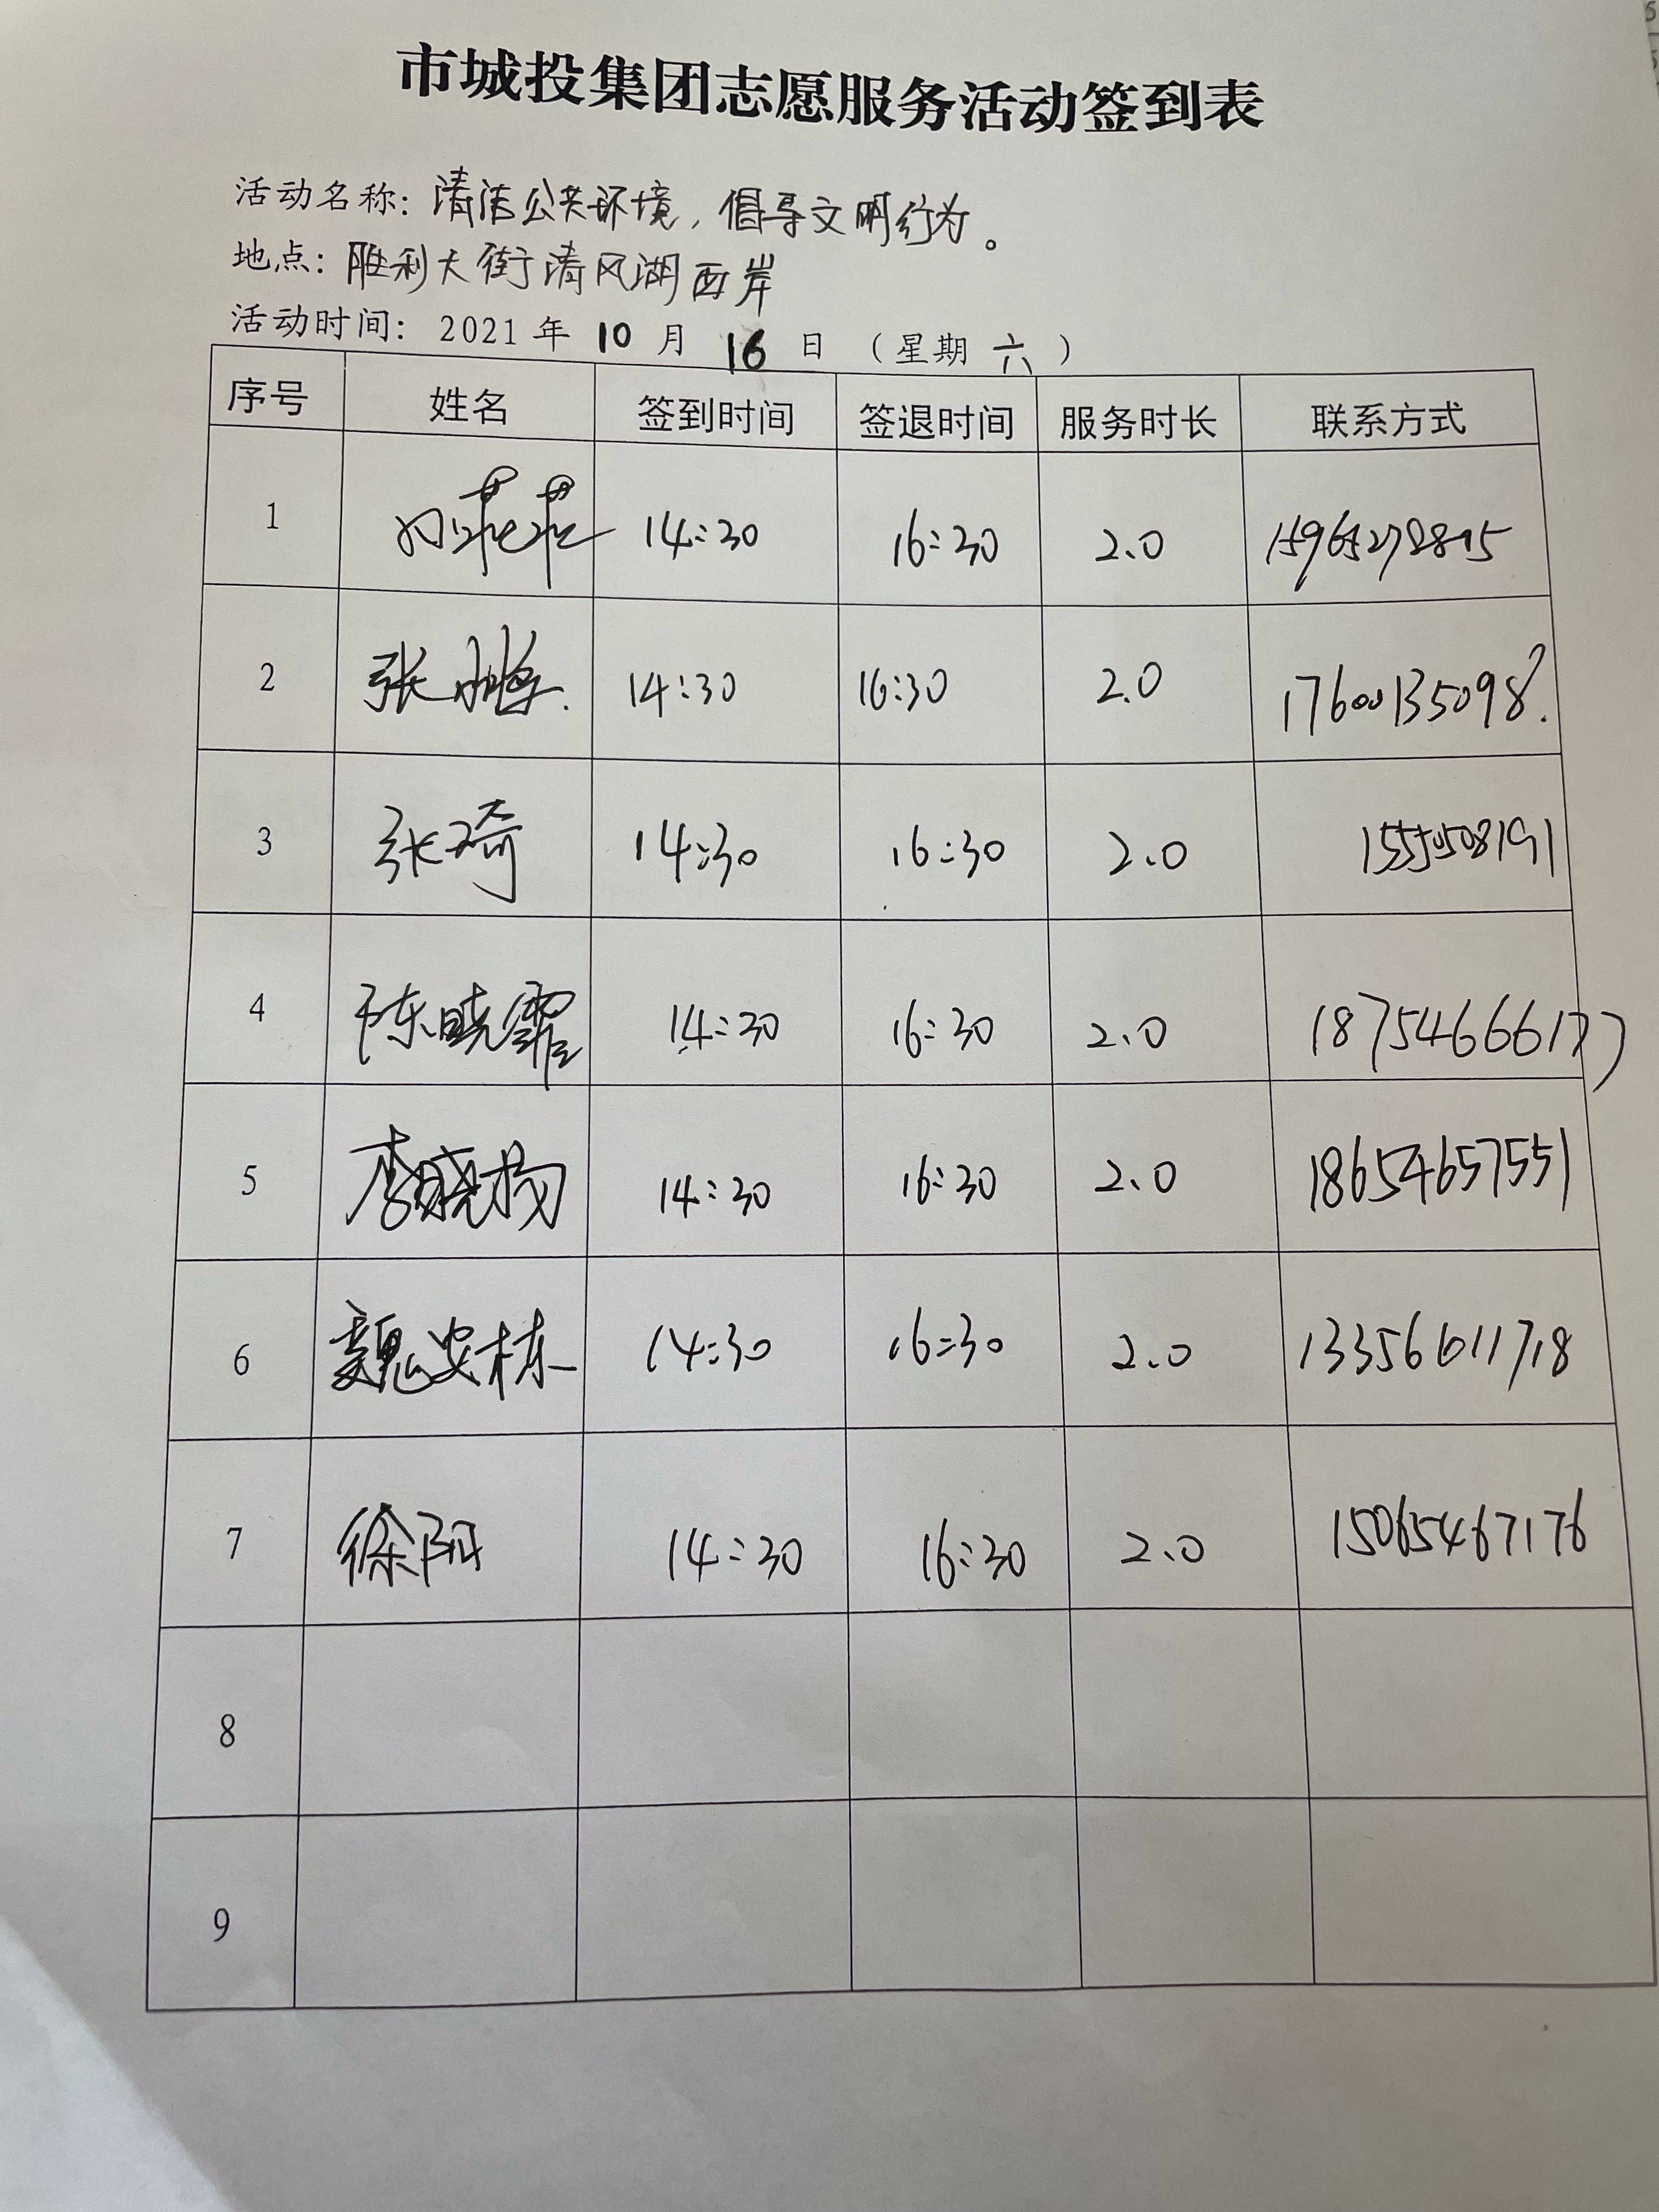 市城投集团志愿服务活动签到表
活动名称：清洁公共环境，倡导文明行为。
地点：胜利大街清风湖西岸
活动时间：2021年10月16日（星期六）
序号 姓名 签到时间 签退时间 服务时长 联系方式
1 14:30 16:30 2.0
2 张 14:30 16:30 2.0 17600135098
3 张琦 14:30 16:30 2.0
4 陈晓霏 14:30 16:30 2.0 18754666177
5 李晓杨 14:30 16:30 2.0 18654657551
6 魏安栋 14:30 16:30 2.0 13356611718
7 徐阳 14:30 16:30 2.0 15065467176
8
9